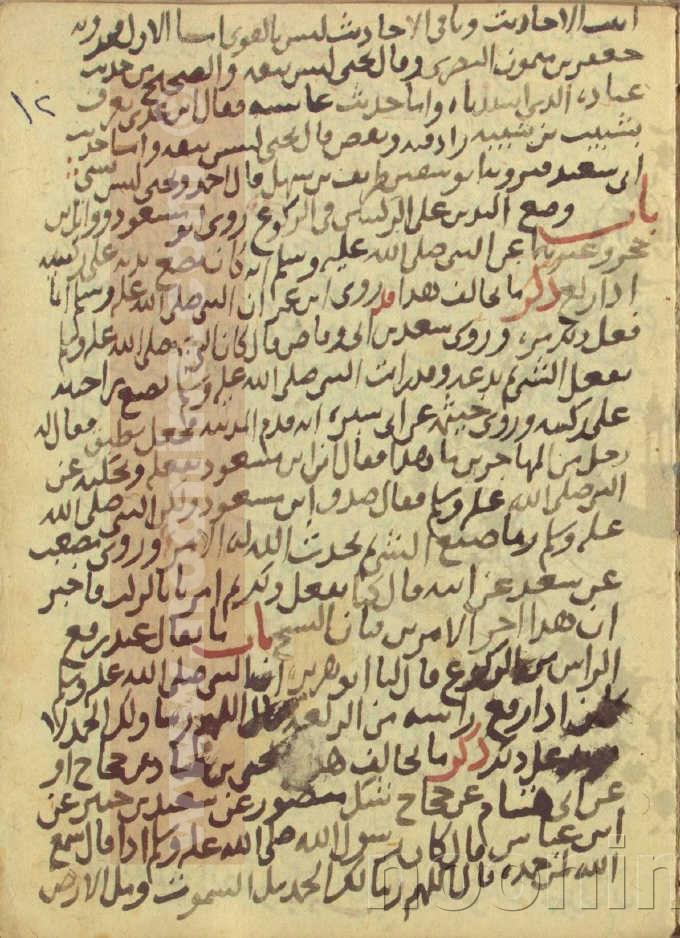 اثبت الاحاديث وباقى الاحاديث ليس بالقوى اسنا الاول
جعفر بن ميمون البصرى وقال يحيى ليس بثقه والصحيح من حديث
عباده الذى ابتدانا به واما حديث عايشه فقال ابن عدى يعرف
بشبيب بن شيبه زاد فيه وبعض قال يحيى ليس بثقه واما حديث
ابى سعيد طريف بن سهل قال احمد ويحيى ليس بشى
باب وضع اليدين على الركبتين فى الركوع روى ابن مسعود ووايل بن
حجر وغيرهما عن النبى صلى الله عليه وسلم انه كان يضع يديه على ركبتيه
اذا ركع ذكر ما يخالف هذا قد روى ابن عمر ان النبى صلى الله عليه وسلم انما
فعل ذلك مره وروى سعد بن ابى وقاص قال كان النبى صلى الله عليه وسلم
يفعل الشى ثم يدعه وقد رايت النبى صلى الله عليه وسلم يضع راحتيه
على ركبتيه وروى خيثمه عن ابى سبره انه قدم المدينه فجعل يطبق فقال له
رجل من المهاجرين ما هذا فقال ان ابن مسعود يفعله ويحكيه عن
النبى صلى الله عليه وسلم فقال صدق ابن مسعود ولكن النبى صلى الله
عليه وسلم ربما صنع الشى ثم يحدث الله له الامر وروى مصعب
عن سعد عن ابيه قال كنا نفعل ذلك ثم امرنا بالركب فاخبر
ان هذا اخر الامرين فبان النسخ باب ما يقال عند رفع
الراس من الركوع قال لنا ابو هريره ان النبى صلى الله عليه وسلم
كان اذا رفع راسه من الركعه قال اللهم ربنا ولك الحمد لا
على ذلك ذكر ما يخالف هذا عن حجاج او
عن ابى عن حجاج شك منصور عن سعيد بن جبير عن
ابن عباس قال كان رسول الله صلى الله عليه وسلم اذا قال سمع
الله لمن حمده قال اللهم ربنا لك الحمد مل السموت ومل الارض
١٢